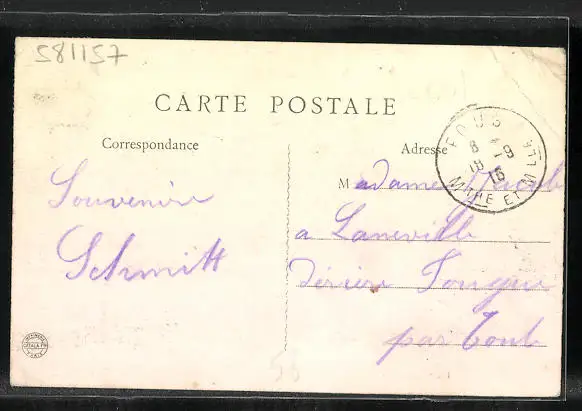 581157
CARTE POSTALE
Correspondance
Adresse
Souvenire
Schmitt
Madame Jacob
a Laneville
dérière Tougue
par Toul
FOUG
8 4
18 1
16
MTHE ET M